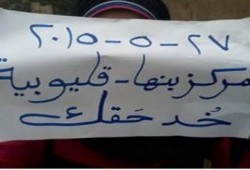 ٢٧-٥-٢٠١٥
مركز بنها-قليوبية
خد حقك